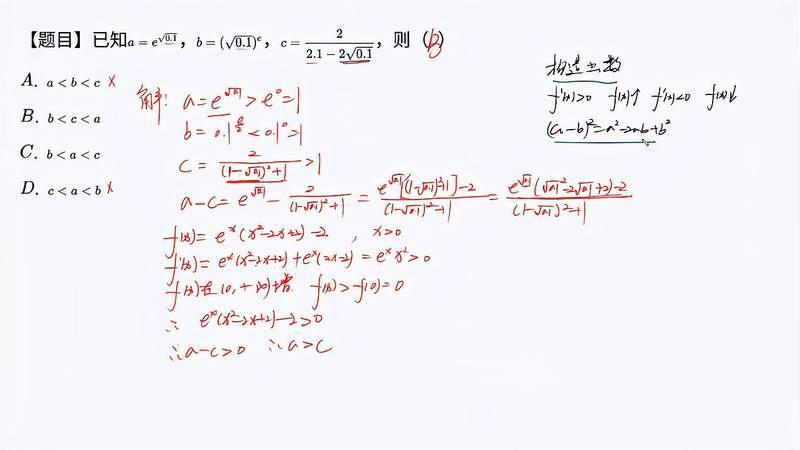 【题目】已知a = e^{√0.1}，b = (√0.1)^e，c = 2/(2.1-2√0.1)，则（B）
A. a < b < c ×
B. b < c < a
C. b < a < c
D. c < a < b ×
构造函数
f'(x)>0 f(x)↑ f'(x)<0 f(x)↓
(a-b)²=a²-2ab+b²
解: a = e^{√0.1} > e⁰ = 1
b = 0.1^{e/2} < 0.1⁰ = 1
c = 2/((1-√0.1)²+1) > 1
a-c = e^{√0.1} - 2/((1-√0.1)²+1) = (e^{√0.1}[(1-√0.1)²+1]-2)/((1-√0.1)²+1) = (e^{√0.1}(√0.1²-2√0.1+2)-2)/((1-√0.1)²+1)
f(x) = e^x(x²-2x+2)-2 , x>0
f'(x) = e^x(x²-2x+2)+e^x(2x-2) = e^x x² > 0
f(x)在(0,+∞)增. f(x)>f(0)=0
∴ e^x(x²-2x+2)-2>0
∴a-c>0 ∴a>c